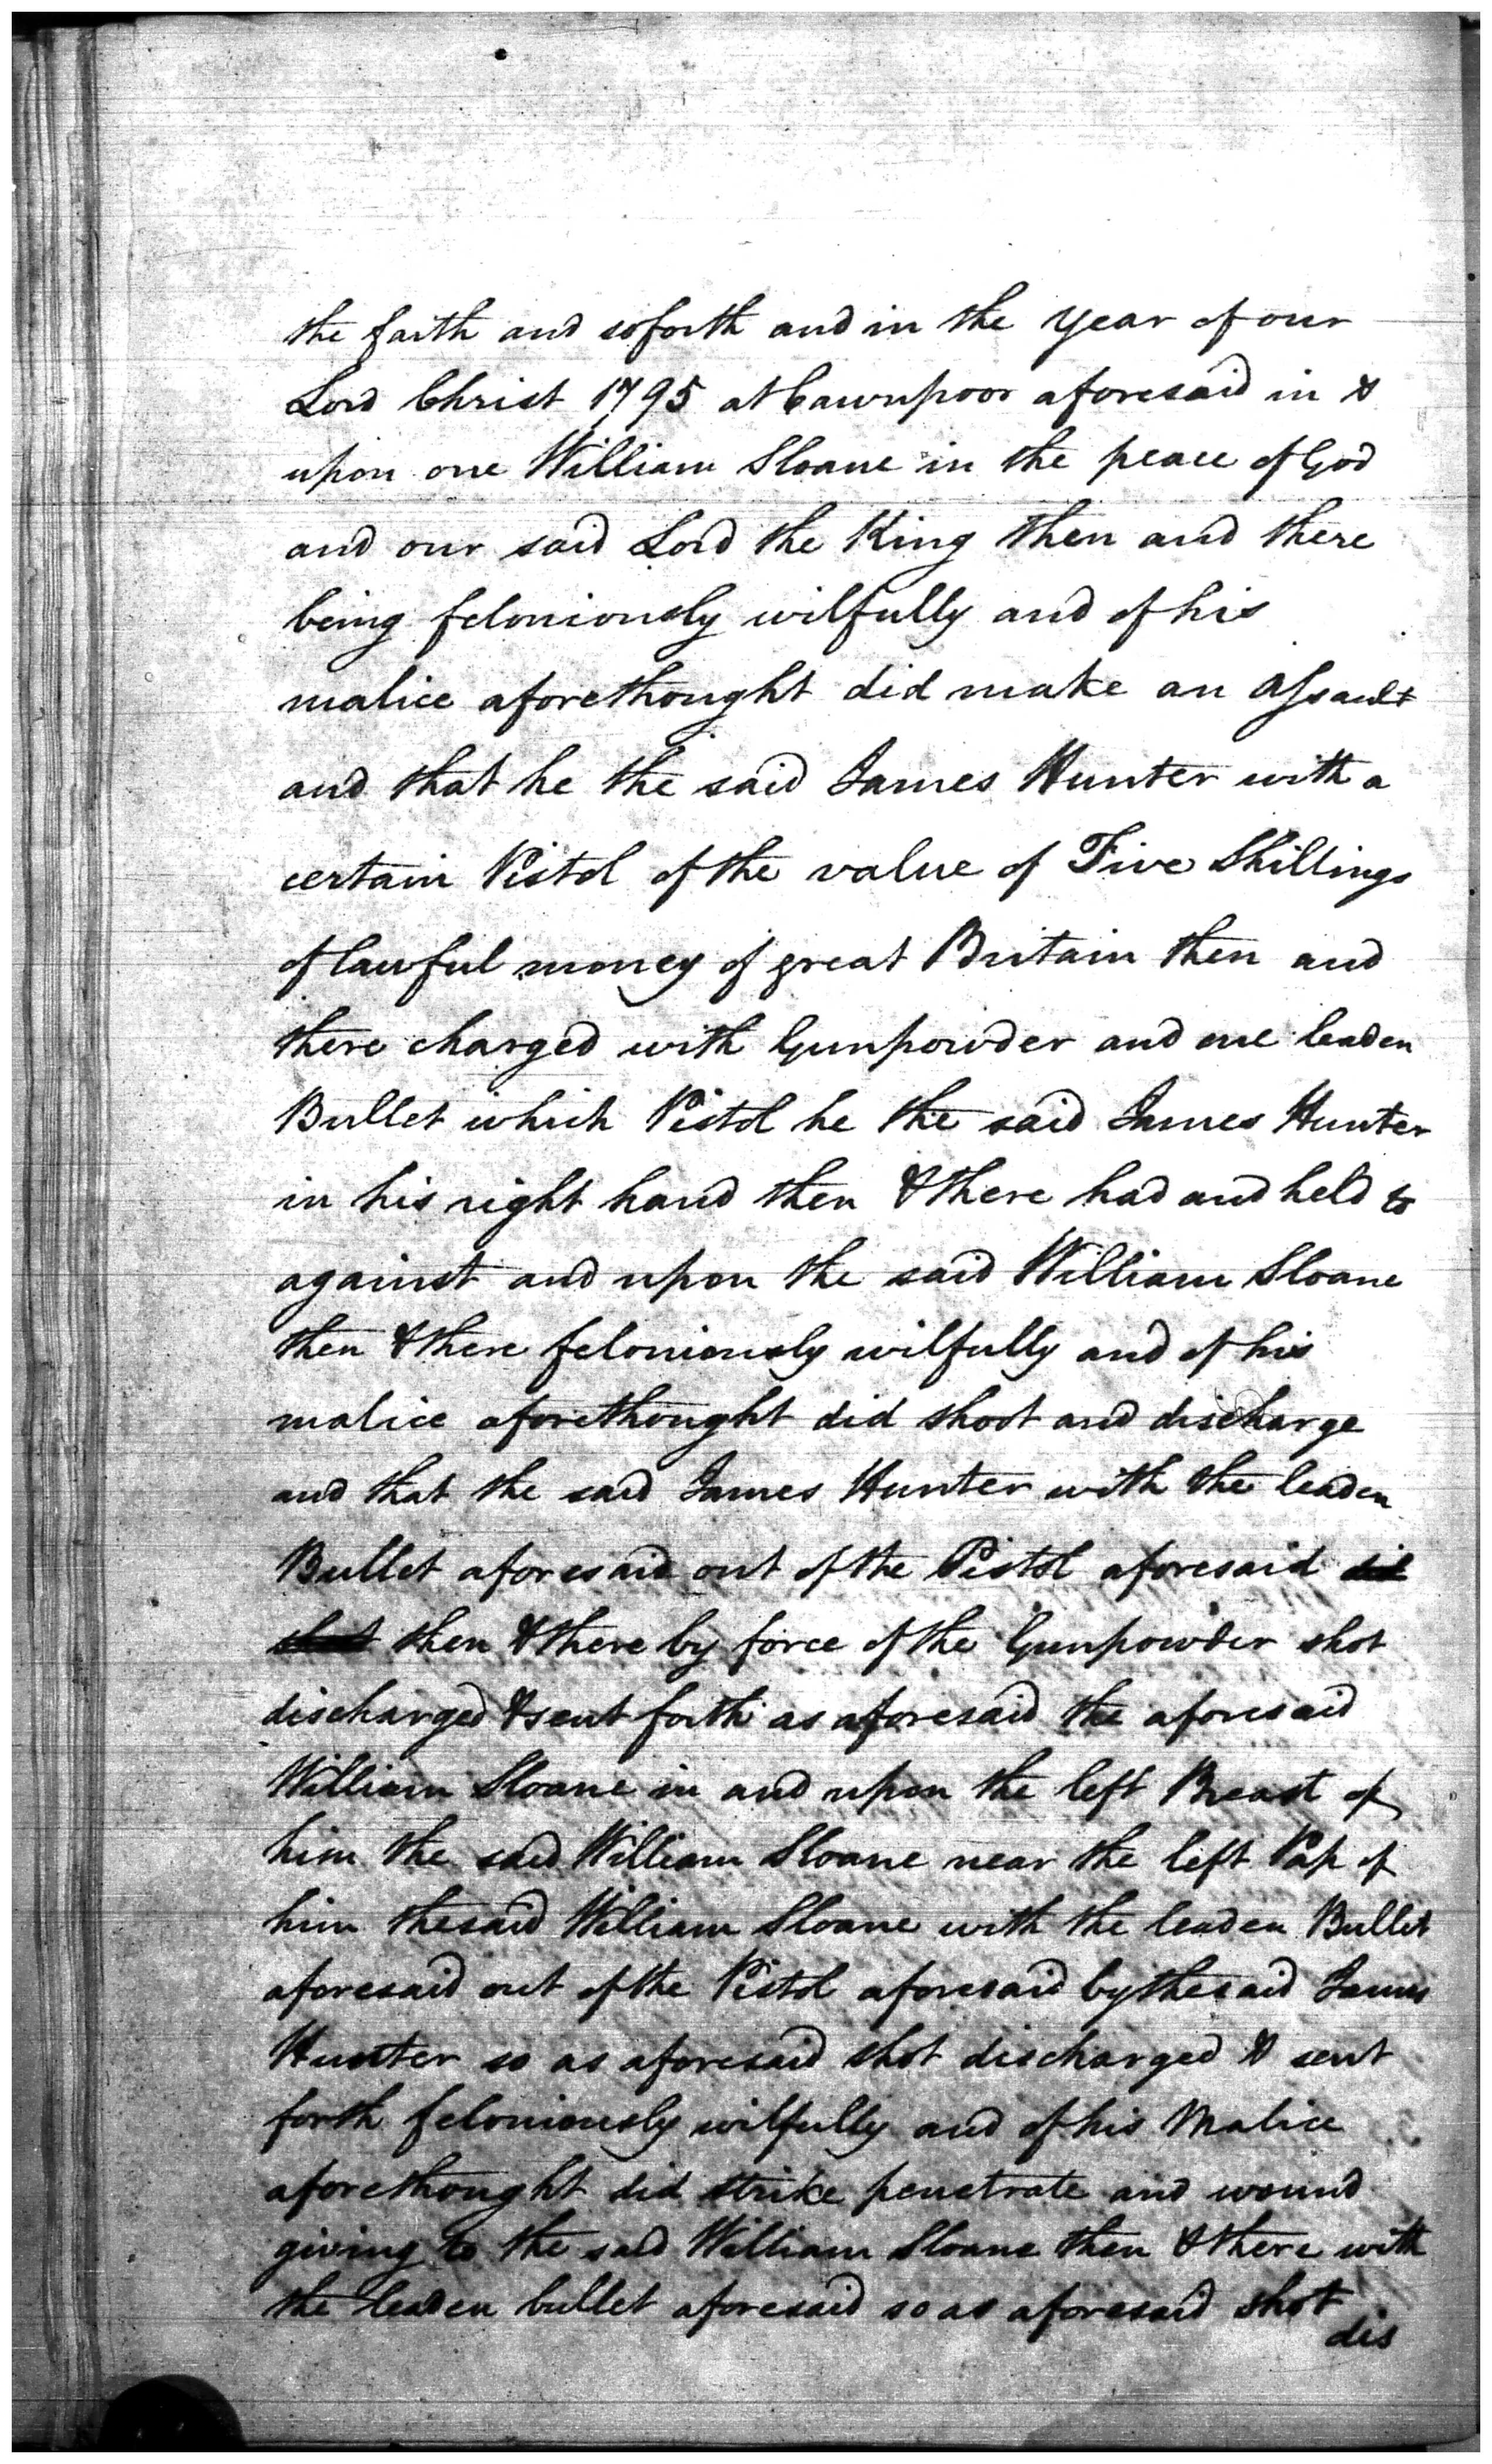 the faith and soforth and in the Year of our
Lord Christ 1795 at Cawnpoor aforesaid in &
upon one William Sloane in the peace of God
and our said Lord the King then and there
being feloniously wilfully and of his
malice aforethought did make an Assault
and that he the said James Hunter with a
certain Pistol of the value of Five Shillings
of lawful money of great Britain then and
there charged with Gunpowder and one leaden
Bullet which Pistol he the said James Hunter
in his right hand then & there had and held to
against and upon the said William Sloane
then & there feloniously wilfully and of his
malice aforethought did shoot and discharge
and that the said James Hunter with the leaden
Bullet aforesaid out of the Pistol aforesaid did
shoot then & there by force of the Gunpowder shot
discharged & sent forth as aforesaid the aforesaid
William Sloane in and upon the left Breast of
him the said William Sloane near the left Pap of
him the said William Sloane with the leaden Bullet
aforesaid out of the Pistol aforesaid by the said James
Hunter so as aforesaid shot discharged & sent
forth feloniously wilfully and of his Malice
aforethought did strike penetrate and wound
giving to the said William Sloane then & there with
the leaden bullet aforesaid so as aforesaid shot
dis